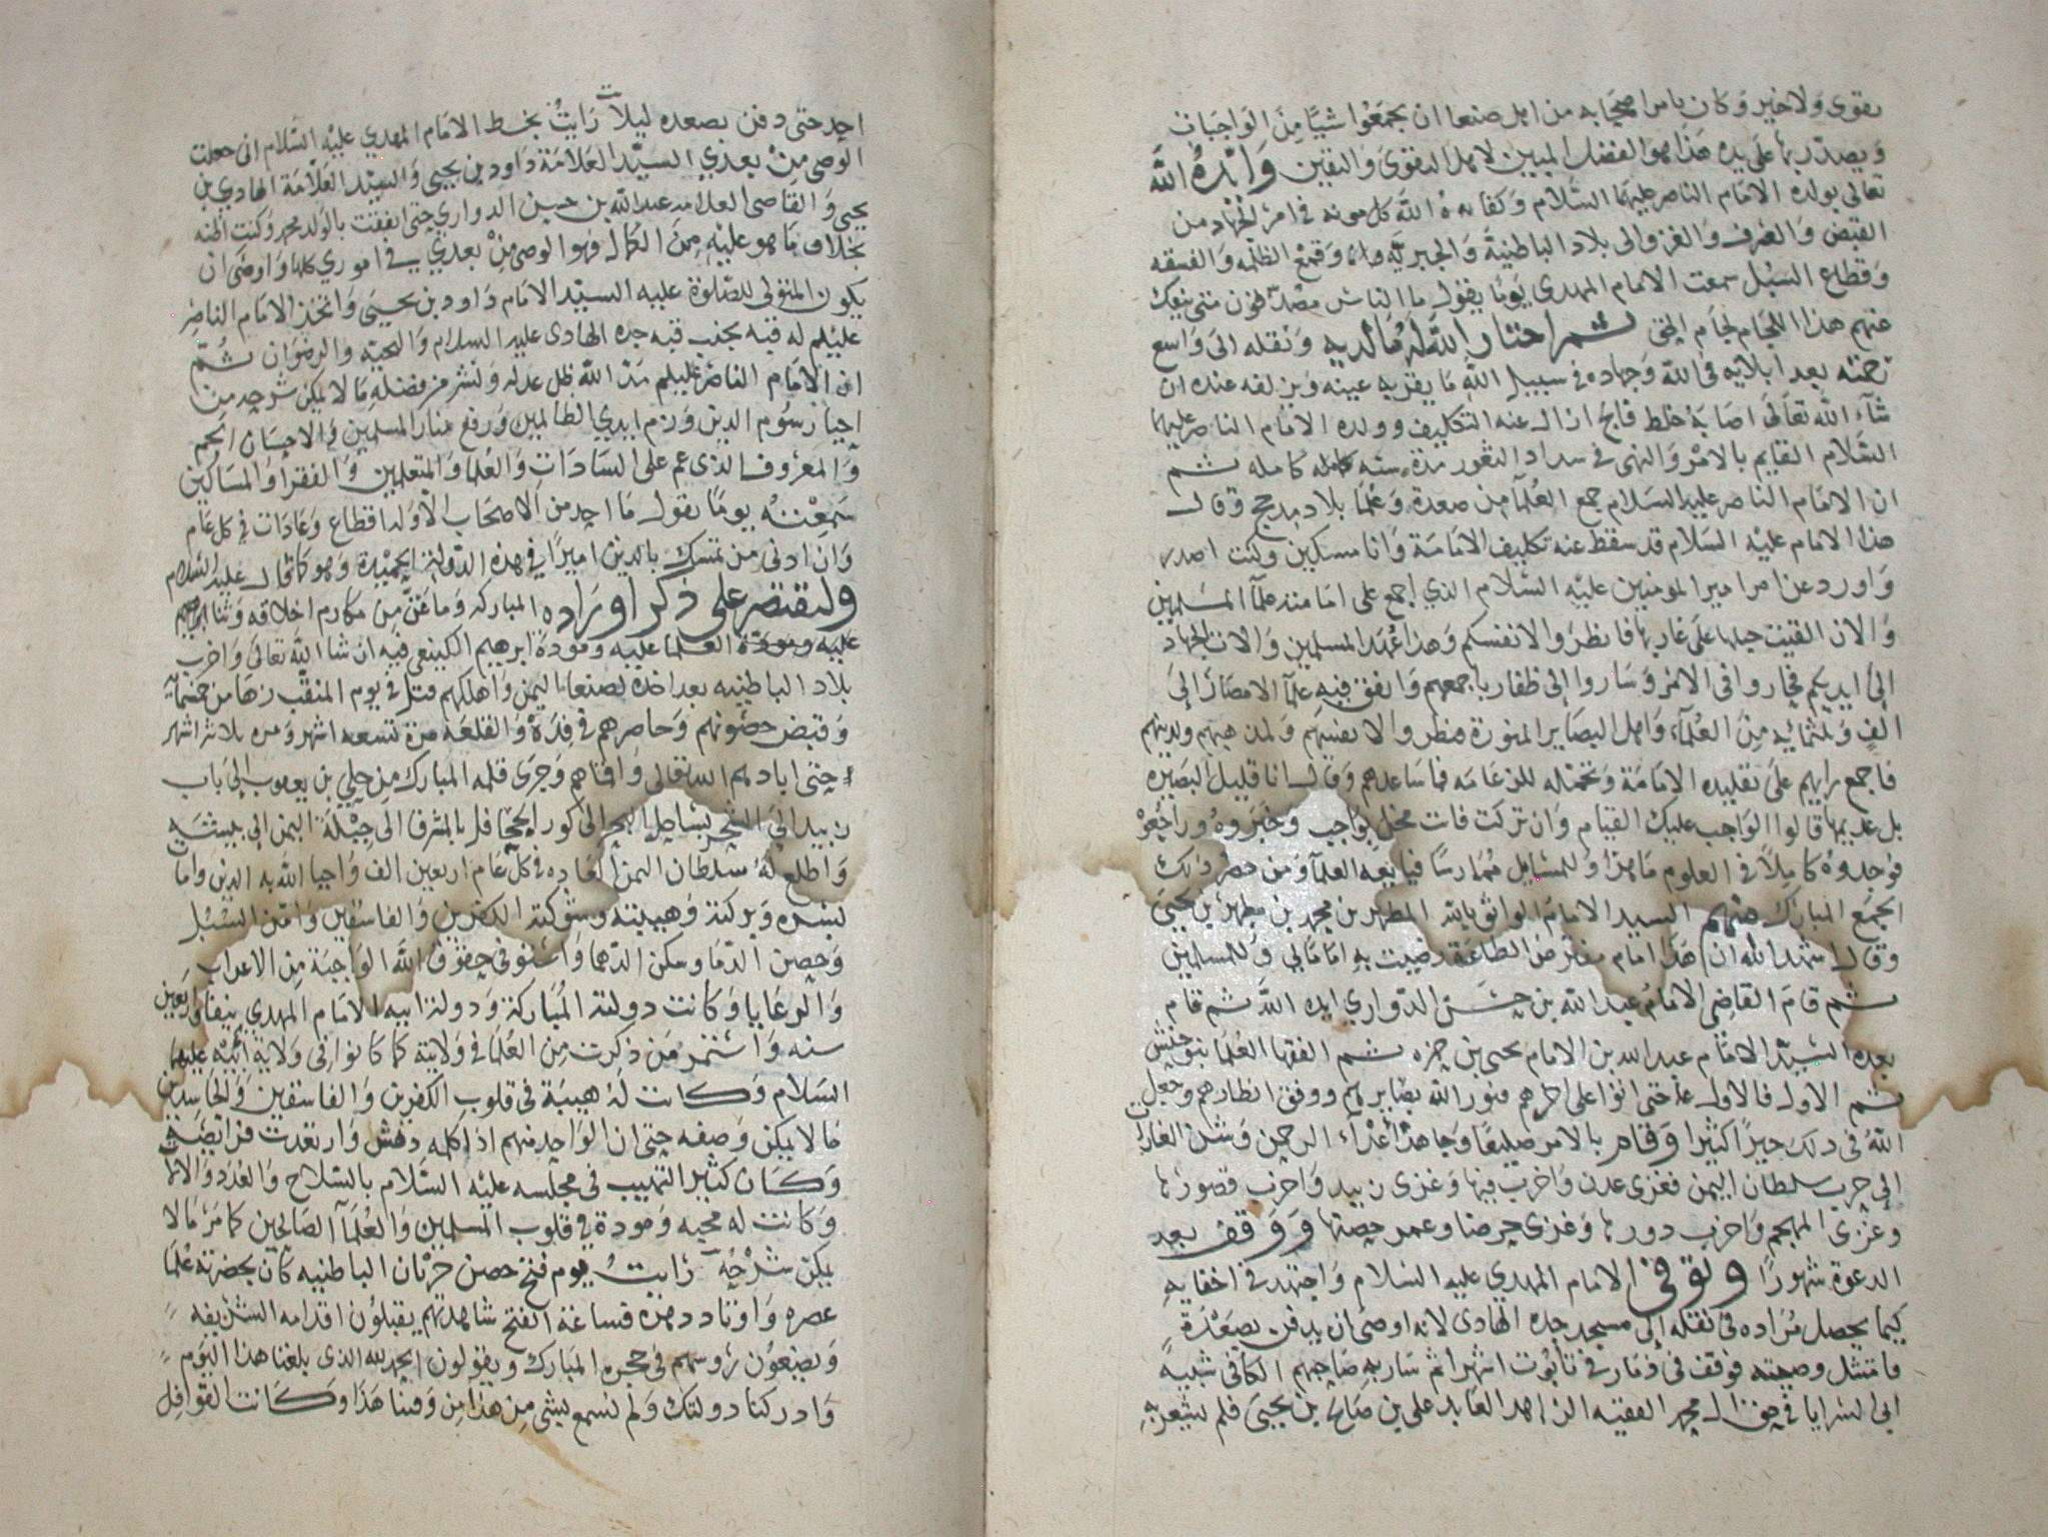 بقوى ولا خير وكان يامر اصحابه من اهل صنعا ان يجمعوا شيًا من الواجبات
ويصدر بها على يده هذا هو الفضل المبين لاهل التقوى واليقين وايده الله
تعالى بولده الامام الناصر عليهما السلام وكفاه الله كل مونه في امر الجهاد من
القبض والصرف والغزو الى بلاد الباطنية والجبرية وقمع الظلمه والفسقه
وقطاع السبل سمعت الامام المهدي يومًا يقول ما الناس مصدقون متى ينفك
عنهم هذا اللجام لجام ثم اختار الله له ما لديه ونقله الى واسع
رحمته بعد ابلايه في الله وجهاده في سبيل الله ما يقر به عينه ويزلفه عنده ان
شآء الله تعالى اصابه خلط فالج ازال عنه التكليف وولده الامام الناصر عليهما
السلام القايم بالامر والنهى في سداد الثغور مدة سنه كامله ثم
ان الامام الناصر عليه السلام جمع العلمآ من صعدة وعلما بلاد مدحج وقال
هذا الامام عليه السلام قد سقط عنه تكليف الامامة وانا مسكين وكنت اصدر
واورد عن امر امير المومنين عليه السلام الذي اجمع على امامته علمآ المسلمين
والان القيت حبلها على غاربها فانظروا لانفسكم وهذا عهد المسلمين والات الجهاد
الى ايديكم فحاروا في الامر وساروا الى ظفار باجمعهم واتفق فيه علمآ الامصار الى
الف وثلثمايه من العلمآء واهل البصاير المنورة فنظروا لانفسهم ولمذهبهم ولدينهم
فاجمع رايهم على تقليده الامامة وتحمله للزعامه فما ساعدهم وقال انا قليل البصيره
بل عديمها قالوا الواجب عليك القيام وان تركت فانت مخل بواجب وخبروه وراجعوه
فوجدوه كاملًا في العلوم ماهرًا وللمسايل ممارسًا فبايعه العلمآ ومن حضر ذلك
الجمع المبارك منهم السيد الامام الواثق بالله المطهر بن محمد بن مطهر بن يحيى
وقال اشهد الله ان هذا امام مفترض الطاعة رضيت به امامًا لي وللمسلمين
ثم قام القاضي الامام عبدالله بن حسن الدواري ايده الله ثم قام
بعده السيد الامام عبدالله بن الامام يحيى بن حمزه ثم الفقها العلما بنو حنش
ثم الاول فالاول حتى اتوا على اخرهم فنور الله بصايرهم ووفق انظارهم وجعل
الله في ذلك خيرًا كثيرا وقام بالامر صليعًا وجاهد اعدآء الرحمن وشن الغارات
الى حرب سلطان اليمن فغزى عدن واخرب فيها وغزى زبيد واخرب قصورها
وغزى المهجم واخرب دورها وغزى حرضا وعمر حصنها ووقف بعد
الدعوة شهورًا وتوفى الامام المهدي عليه السلام واجتهد في اخفايه
كيما يحصل مراده في نقله الى مسجد جده الهادى لانه اوصى ان يدفن بصعدة
فامتثل وصيته فوقف في ذمار في تابوت اشهرا ثم سار به صاحبهم الكافي شبيه
ابي السرايا في محمد الفقيه الزاهد العابد علي بن صالح بن يحيى فلم يشعر به
احد حتى دفن بصعده ليلًا رايت بخط الامام المهدي عليه السلام اني جعلت
الوصي من بعدي السيد العلامة داود بن يحيى والسيد العلامة الهادي بن
يحيى والقاضي العلامه عبدالله بن حسن الدواري حتى ايفقت بالولد محمد وكنت اظنه
بخلاف ما هو عليه من الكمال فهو الوصي من بعدي في اموري كلها واوصى ان
يكون المتولي للصلوة عليه السيد الامام داود بن يحيى واتخذ الامام الناصر
عليلم له قبه بجنب قبه جده الهادى عليه السلام والتحيه والرضوان ثم
ان الامام الناصر عليلم مد الله ظل عدله ونشر من فضله ما لا يمكن شرحه من
احيا رسوم الدين وزم ايدي الظالمين ورفع منار المسلمين والاحسان الجم
والمعروف الذى عم على السادات والعلما والمتعلمين والفقرا والمساكين
سمعته يومًا يقول ما احد من الاصحاب الا وله اقطاع وعادات في كل عام
وان ادنى من تمسك بالدين اميرًا في هذه الدوله الحميدة وهو كما قال عليه السلام
ولنقتصر على ذكر اوراده المباركه وما عن من مكارم اخلاقه وثنا ابراهيم
عليه ومودة العلما عليه ومودة ابرهيم الكينعي فيه ان شا الله تعالى واخرب
بلاد الباطنيه بعد اخذه لصنعا اليمن واهلكهم قتل في يوم المنقب زها من خمسمايه
وقبض حصونهم وحاصرهم في فدة والقلعة مرة تسعه اشهر ومره ثلاثه اشهر
حتى ابادهم الله تعالى وافناهم وجرى قلمه المبارك من حلي بن يعقوب الى باب
زبيد الى الشحر بساحل البحر الى كور الجحافل بالمشرق الى جبلة اليمن الى بيشه
واطلع له سلطان اليمن العاده في كل عام اربعين الف واحيا الله به الدين وامات
بنشره وبركته وهيبته وشوكته الكفرين والفاسقين وامن السبل
وحصن الدما وسكن الدهما واستوفى حقوق الله الواجبة من الاعراب
والرعايا وكانت دولته المباركة ودولة ابيه الامام المهدي نيفًا واربعين
سنه واستمر من ذكرت من العلما في ولايته كما كانوا في ولاية ابيه عليهما
السلام وكانت له هيبة في قلوب الكفرين والفاسقين والحاسدين
ما لا يمكن وصفه حتى ان الواحد منهم اذا كلمه دهش وارتعدت فرايصه
وكان كثير التهيب في مجلسه عليه السلام بالسلاح والعدد والالة
وكانت له محبه ومودة في قلوب المسلمين والعلمآ الصالحين كما مر ما لا
يمكن شرحه رايت يوم فتح حصن حرثان الباطنيه كان بحضرته علما
عصره واوتاد دهره فساعة الفتح شاهدتهم يقبلون اقدامه الشريفه
ويضعون رؤوسهم في حجره المبارك ويقولون الحمدلله الذى بلغنا هذا اليوم
وادركنا دولتك ولم نسمع بشي من هذا من وقتنا هذا وكانت القوافل